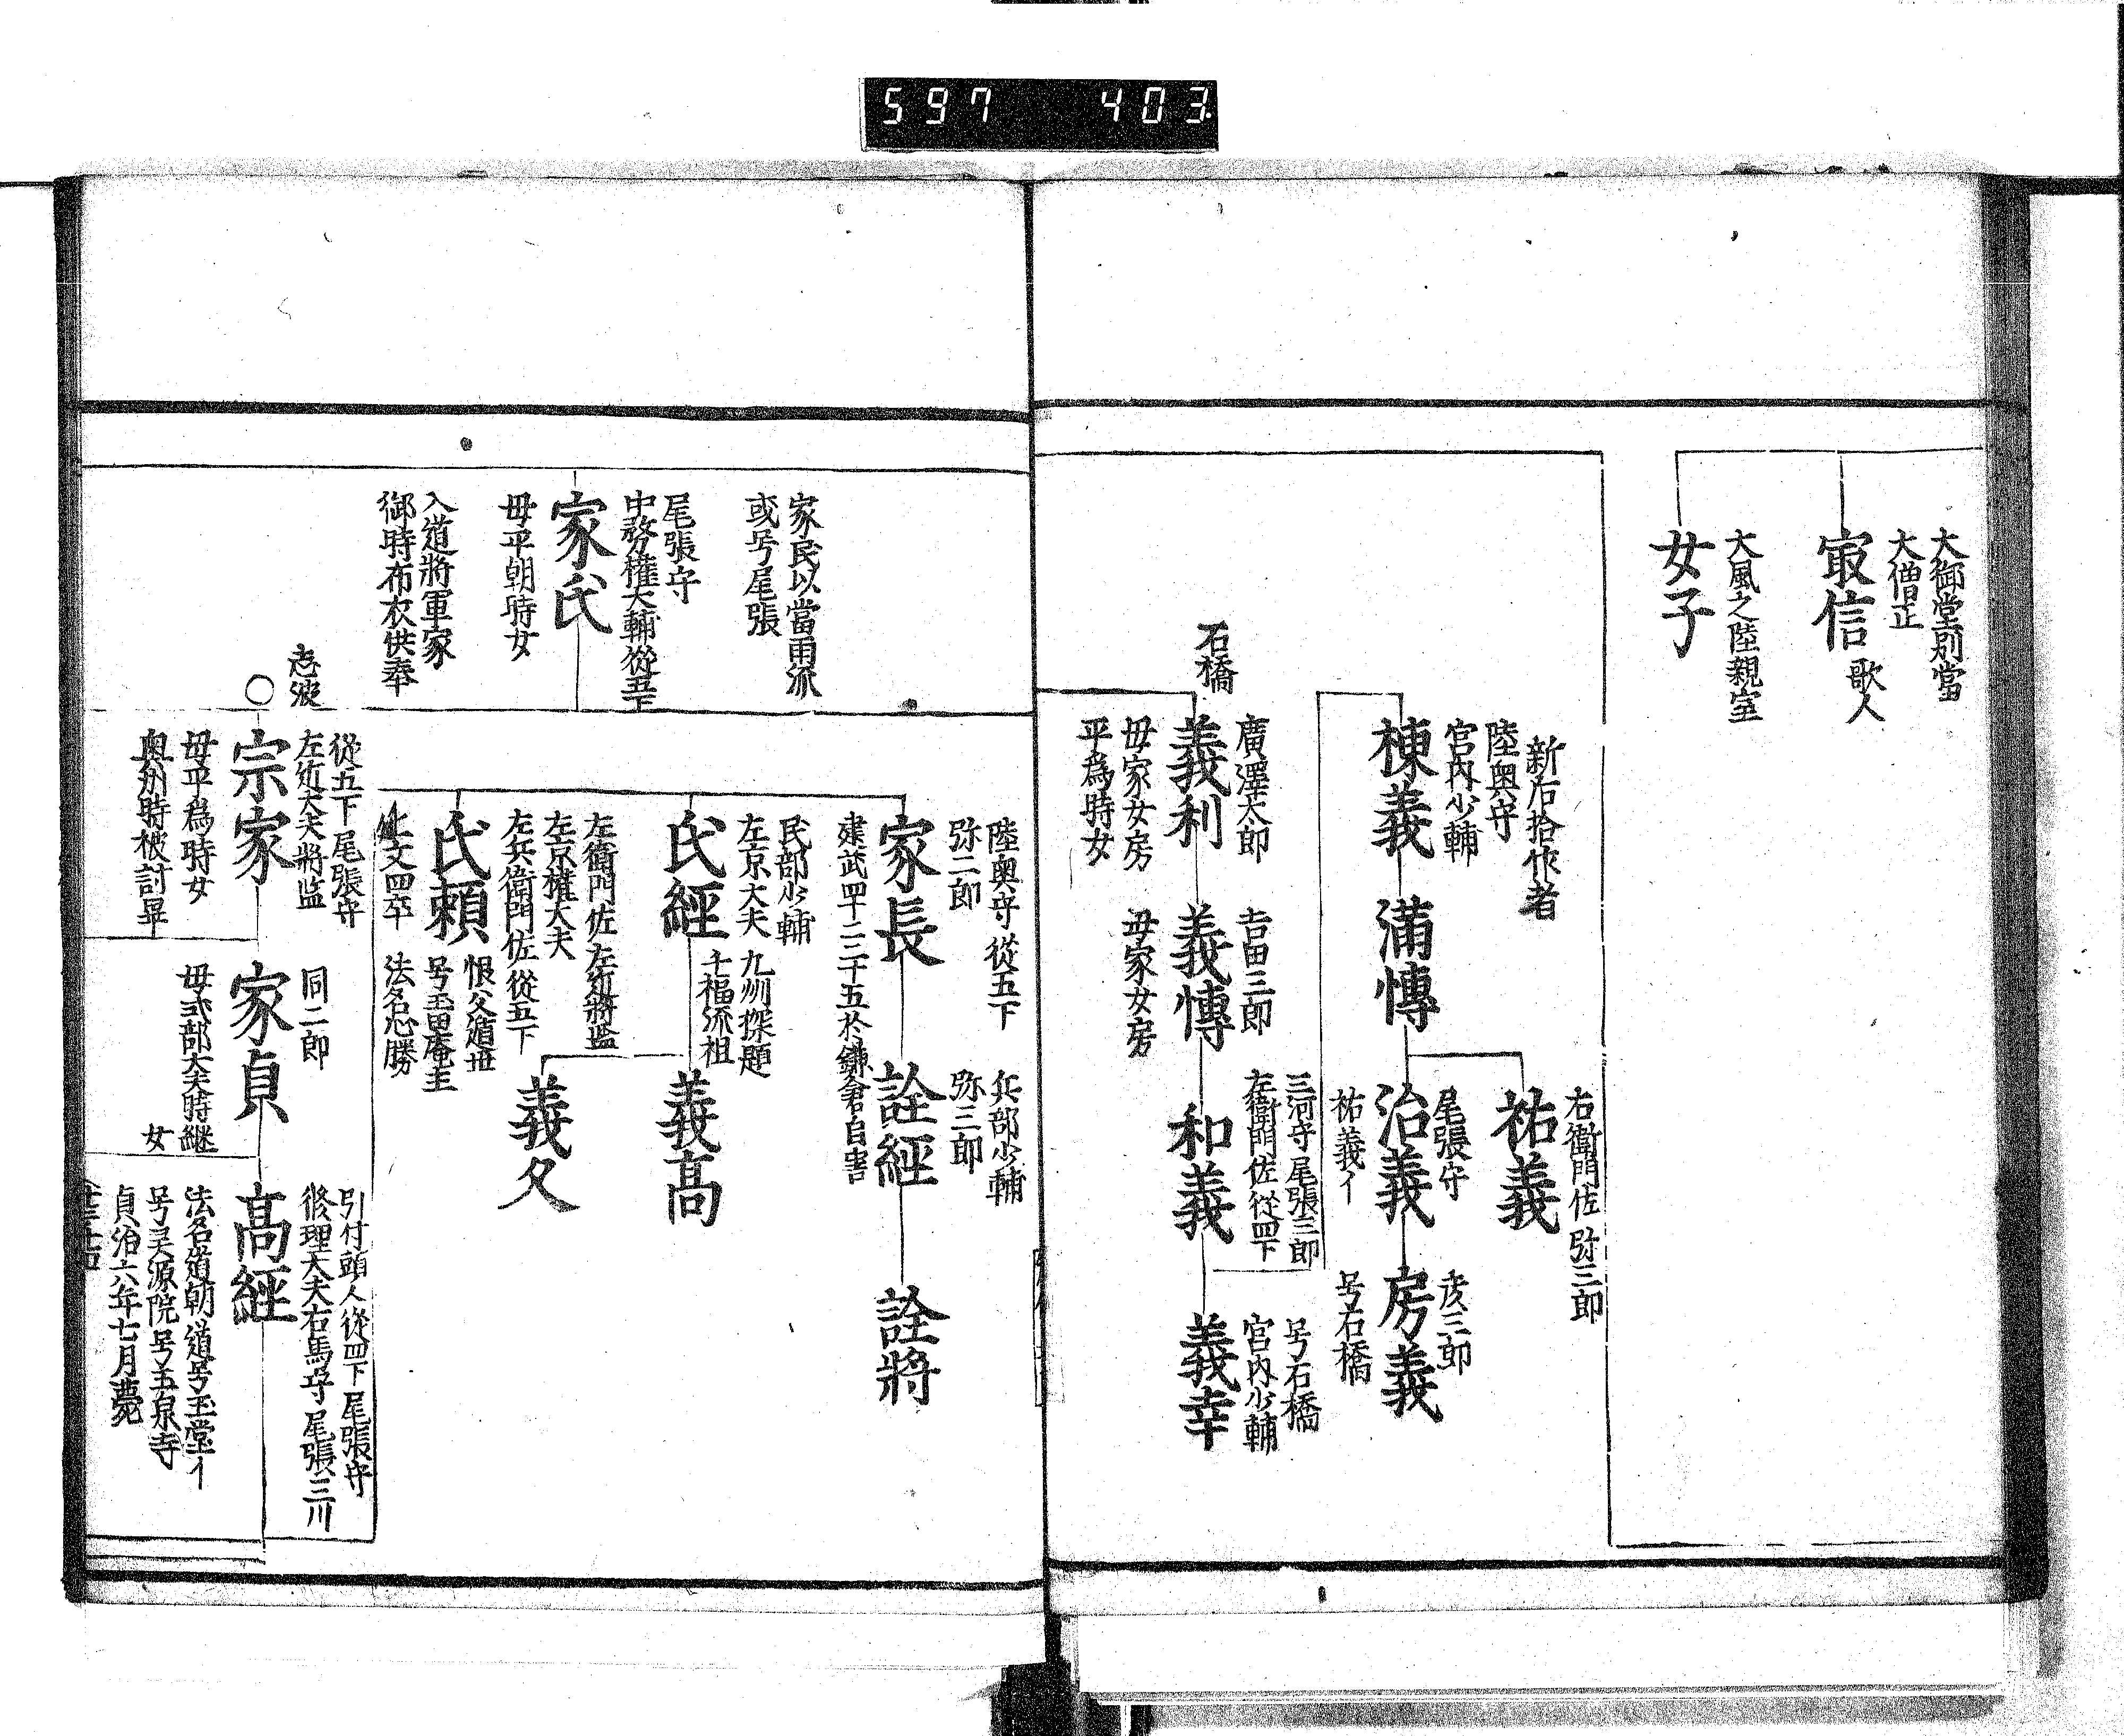 597 403
大御堂別當
大僧正
㝡信
歌人
大風之陸親室
女子
新后拾作者
陸奥守
宮内少輔
棟義
滿博
右衛門佐 弥三郎
祐義
尾張守
治義
祐義イ
孫三郎
房義
号石橋
石橋
廣澤太郎
義利
母家女房
平為時女
吉田三郎
義博
母家女房
三河守 尾張三郎
左衛門佐 從四下
和義
号石橋
宮内少輔
義幸
家氏以當兩流
或号尾張
尾張守
中務權大輔從五下
家氏
母平朝時女
入道將軍家
御時布衣供奉
陸奥守 從五下
弥二郎
家長
建武四十二三十五於鎌倉自害
兵部少輔
弥三郎
詮經
詮將
民部少輔
左京大夫 九州探題
氏經
千福流祖
義高
義久
左衛門佐 左近將監
左京權大夫
左兵衛門佐 從五下
氏頼
恨父遁世
号玉岩庵主
法名心勝
志波
從五下 尾張守
左近大夫將監
宗家
母平為時女
奥州時被討畢
同二郎
家貞
母式部大夫時継
女
引付頭人 從四下 尾張守
修理大夫 右馬守 尾張三川
高經
法名道朝 道号玉堂イ
号灵源院 号玉泉寺
貞治六年七月薨